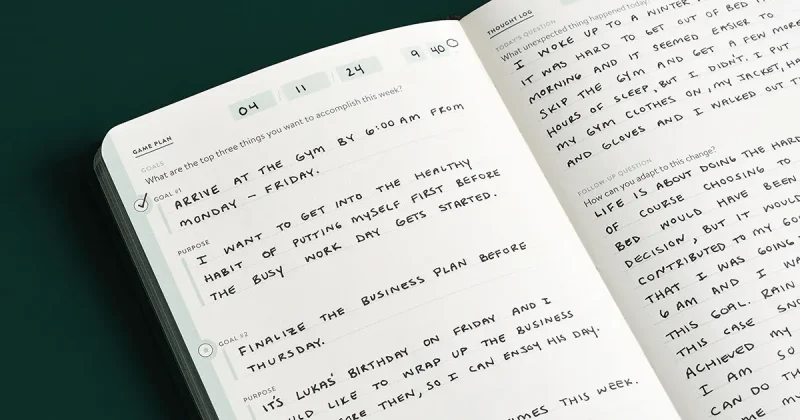 04 / 11 / 24 9 40
GAME PLAN
GOALS
What are the top three things you want to accomplish this week?
GOAL #1
ARRIVE AT THE GYM BY 6:00 AM FROM
MONDAY – FRIDAY.
PURPOSE
I WANT TO GET INTO THE HEALTHY
HABIT OF PUTTING MYSELF FIRST BEFORE
THE BUSY WORK DAY GETS STARTED.
GOAL #2
FINALIZE THE BUSINESS PLAN BEFORE
THURSDAY.
PURPOSE
IT'S LUKAS' BIRTHDAY ON FRIDAY AND I
LIKE TO WRAP UP THE BUSINESS
THEN, SO I CAN ENJOY HIS DAY.
THIS WEEK.
THOUGHT LOG
TODAY'S QUESTION
What unexpected thing happened today
I WOKE UP TO A WINTER
IT WAS HARD TO GET OUT OF BED
MORNING AND IT SEEMED EASIER TO
SKIP THE GYM AND GET A FEW MORE
HOURS OF SLEEP, BUT I DIDN'T. I PUT
MY GYM CLOTHES ON, MY JACKET,
AND GLOVES AND I WALKED OUT
FOLLOW-UP QUESTION
How can you adapt to this change?
LIFE IS ABOUT DOING THE HARD
OF COURSE CHOOSING TO
BED WOULD HAVE BEEN
DECISION, BUT IT WOULD
CONTRIBUTED TO MY
THAT I WAS GOING
6 AM AND I
THIS GOAL. RAIN
THIS CASE
ACHIEVED MY
I AM SO
CAN DO